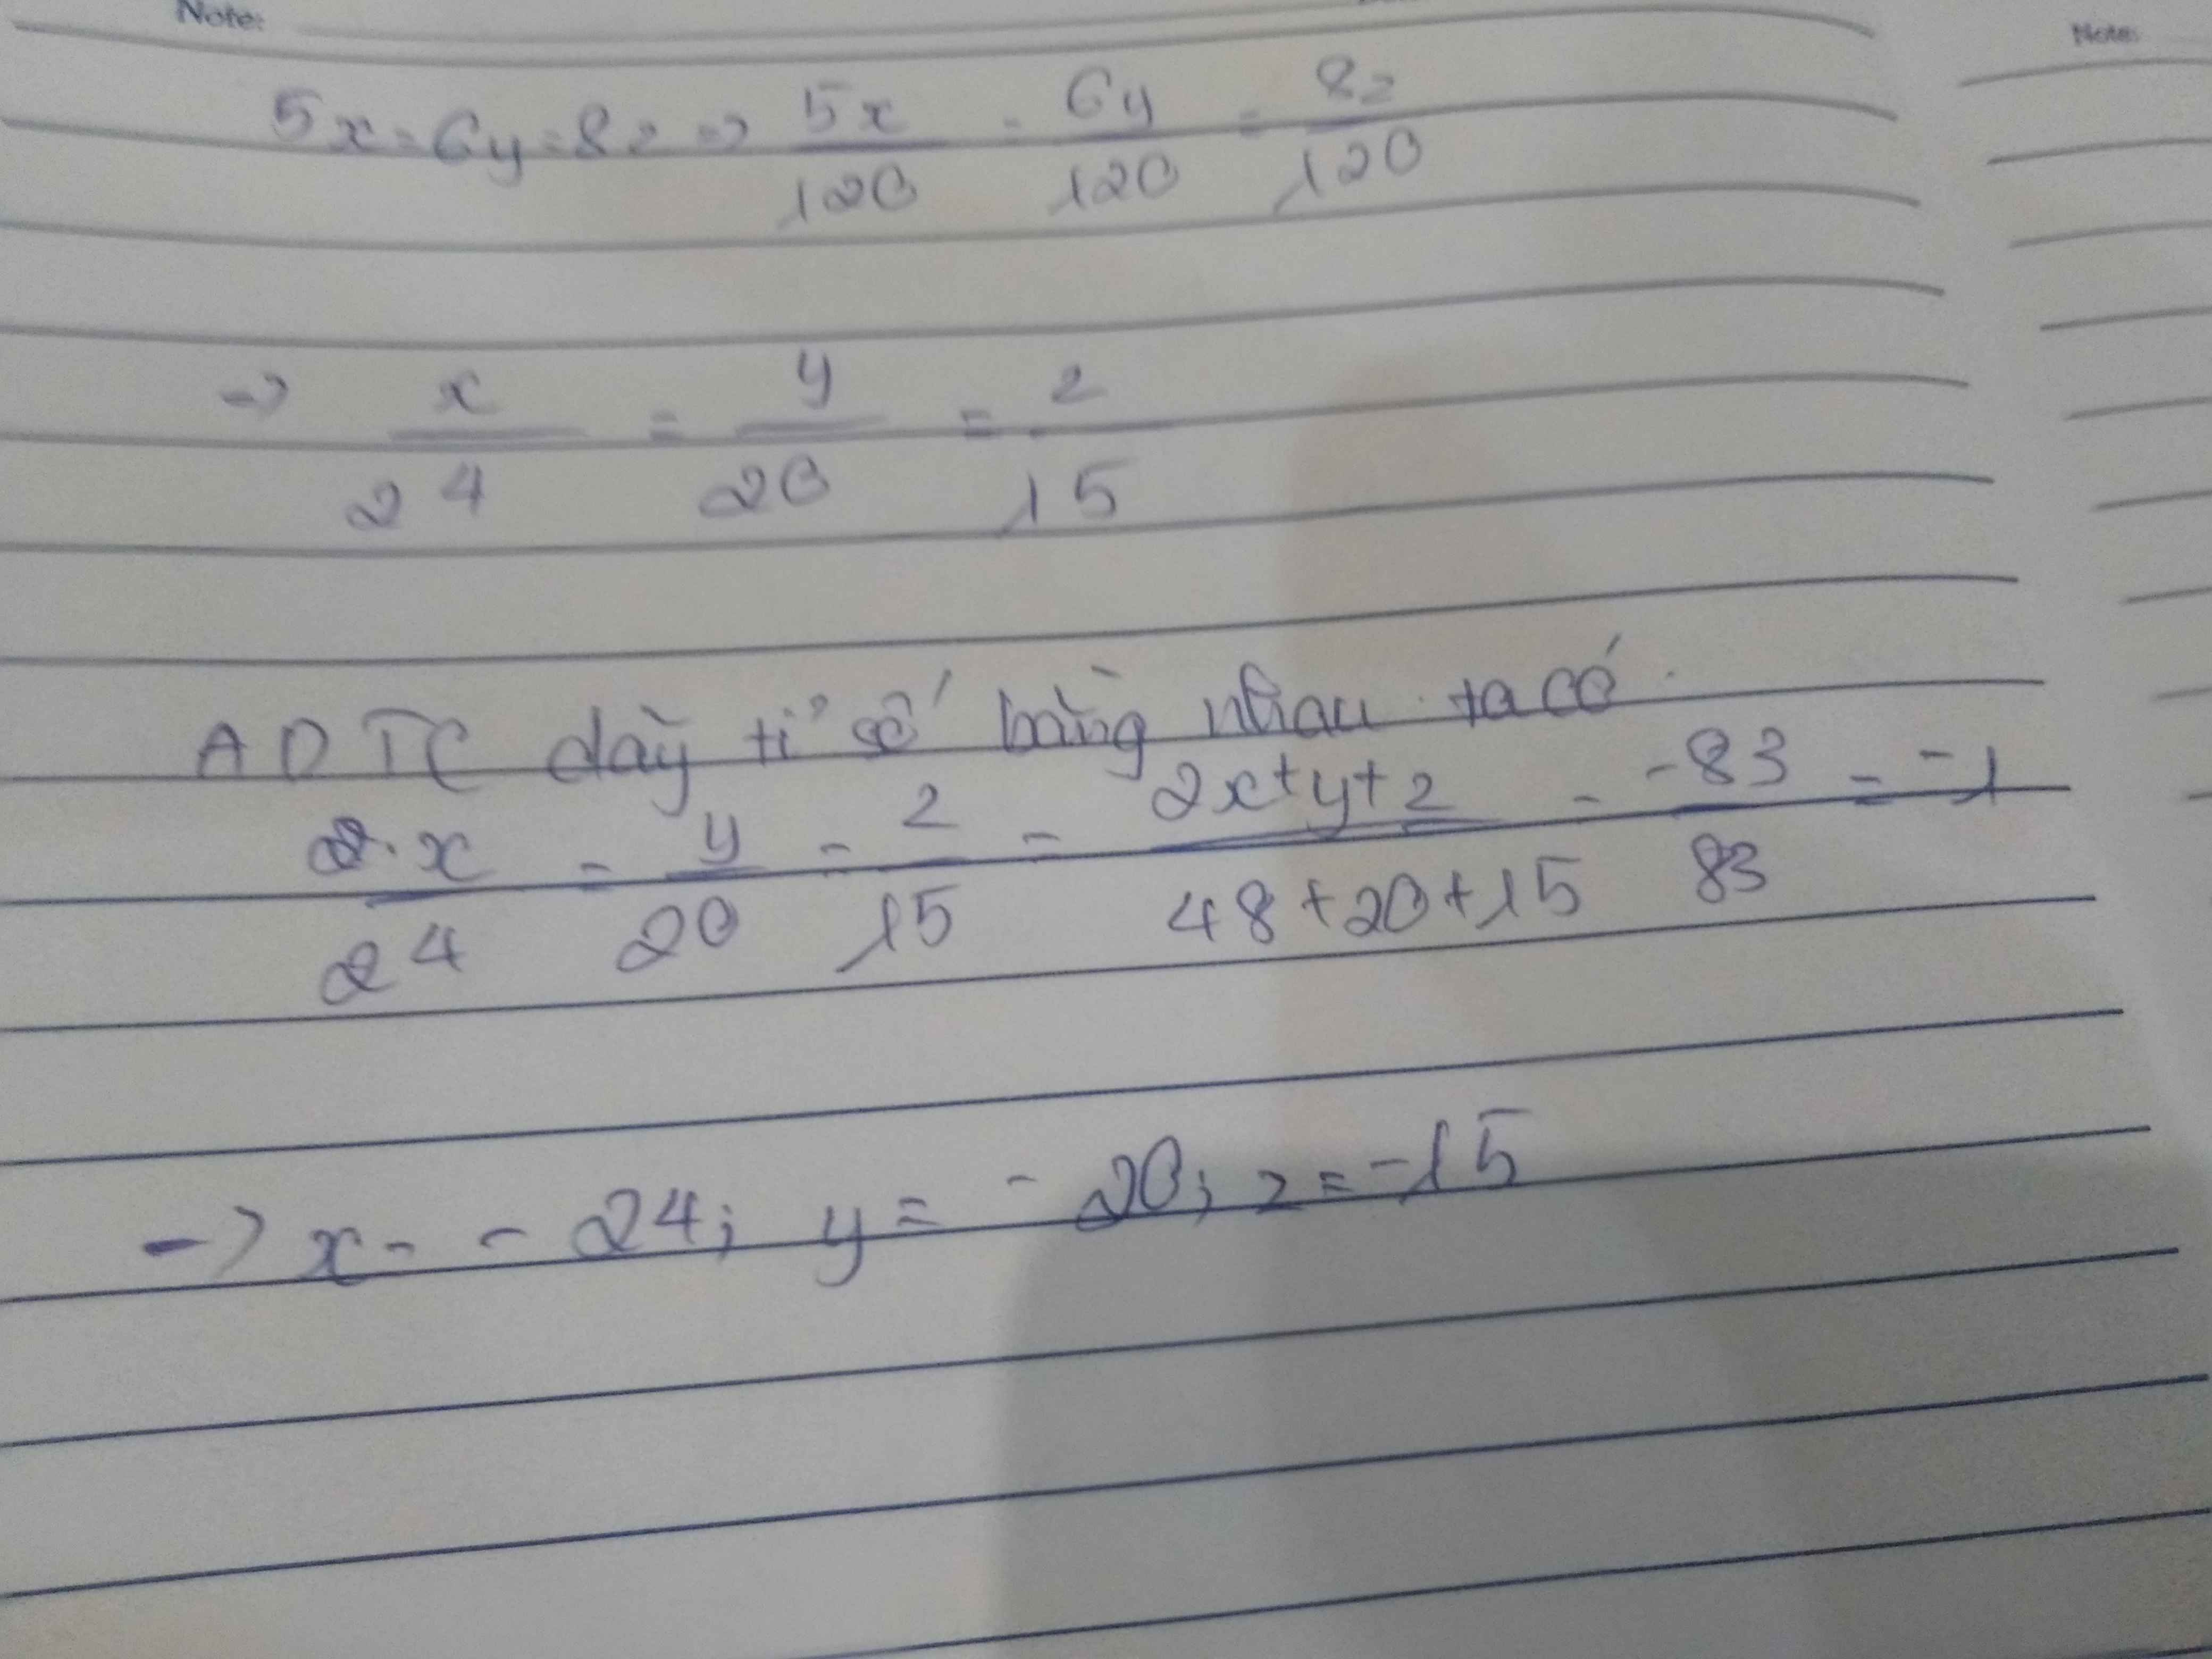 Note: Note:
5x = 6y = 8z => 5x/120 = 6y/120 = 8z/120
-> x/24 = y/20 = z/15
ADTC dãy tỉ số bằng nhau ta có
2.x/24 = y/20 = z/15 = 2x+y+z/48+20+15 = -83/83 = -1
-> x = -24; y = -20; z = -15